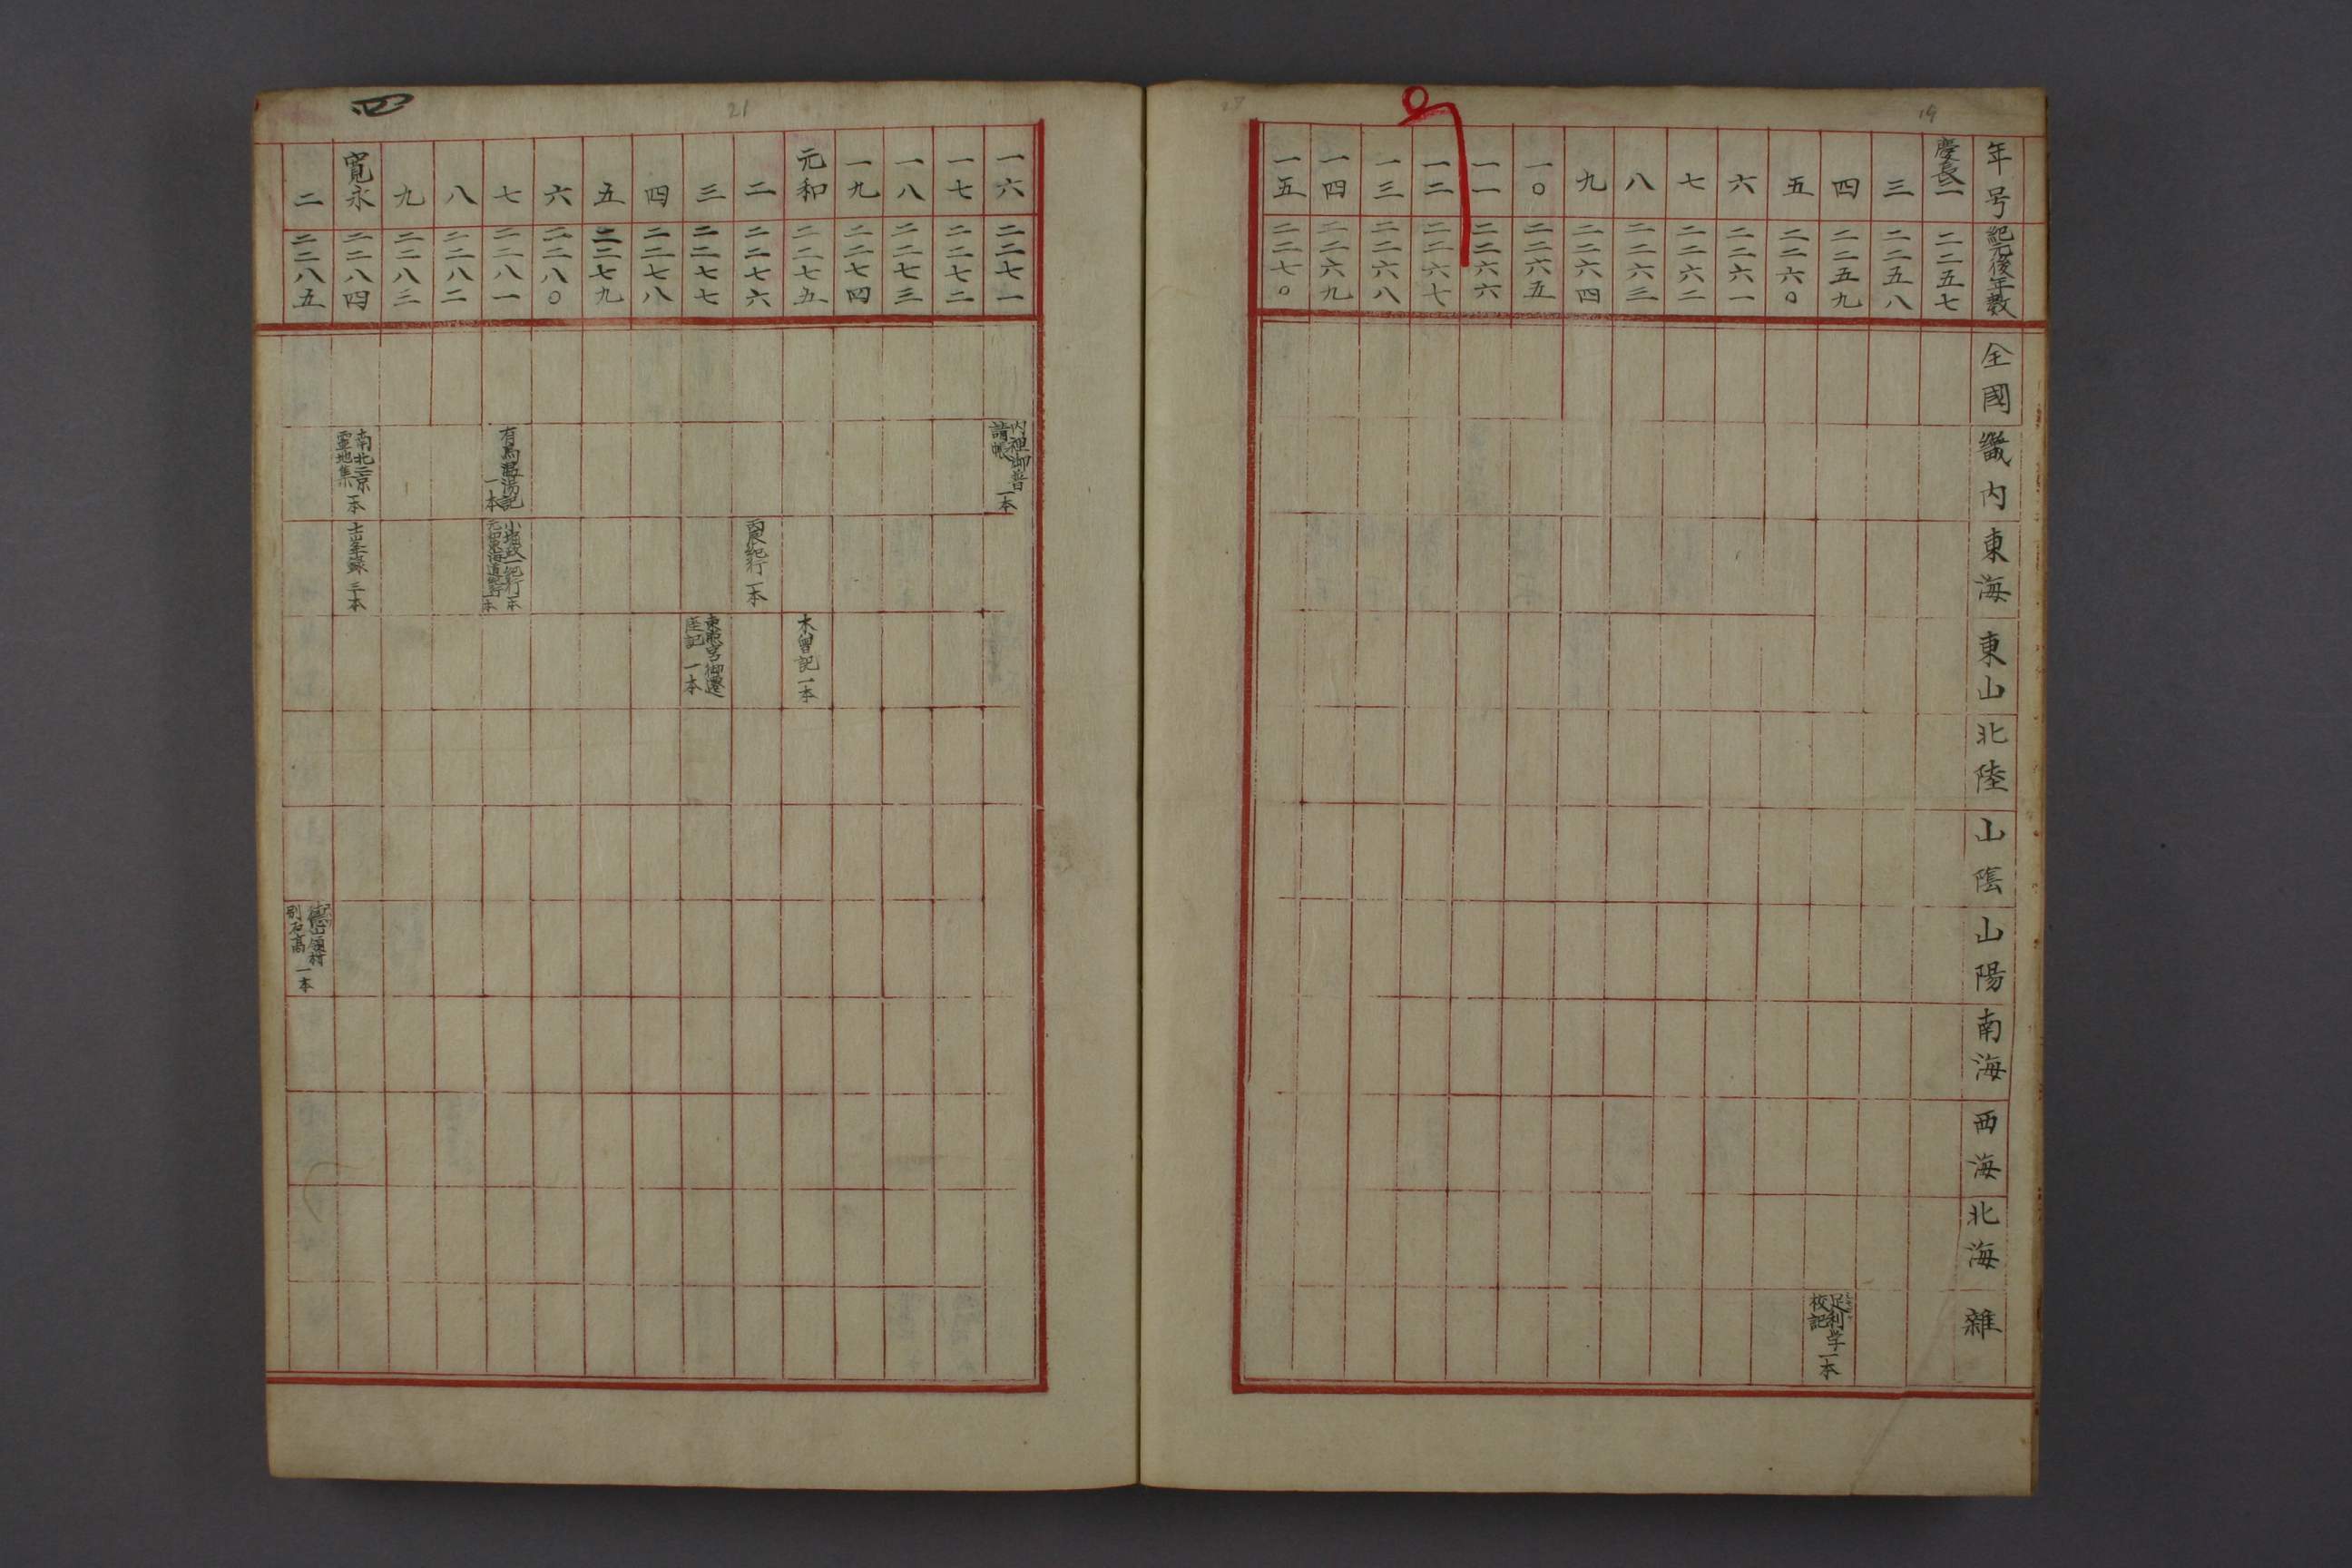 19
年号
紀元後年数
全國
畿内
東海
東山
北陸
山陰
山陽
南海
西海
北海
雜
慶長二
二二五七
三
二二五八
四
二二五九
足利学
校記 一本
五
二二六〇
六
二二六一
七
二二六二
八
二二六三
九
二二六四
一〇
二二六五
一一
二二六六
一二
二二六七
一三
二二六八
一四
二二六九
一五
二二七〇
21
四
一六
二二七一
内裡御普
請帳 一本
一七
二二七二
一八
二二七三
一九
二二七四
元和
二二七五
木曽記 一本
二
二二七六
丙辰紀行 一本
三
二二七七
東照宮御遷
座記 一本
四
二二七八
五
二二七九
六
二二八〇
七
二二八一
有馬温湯記
一本
小堀政一紀行 一本
元和東海道紀行 一本
八
二二八二
九
二二八三
寛永
二二八四
南北二京
霊地集 一本
三本
二
二二八五
徳山領村
別石高 一本